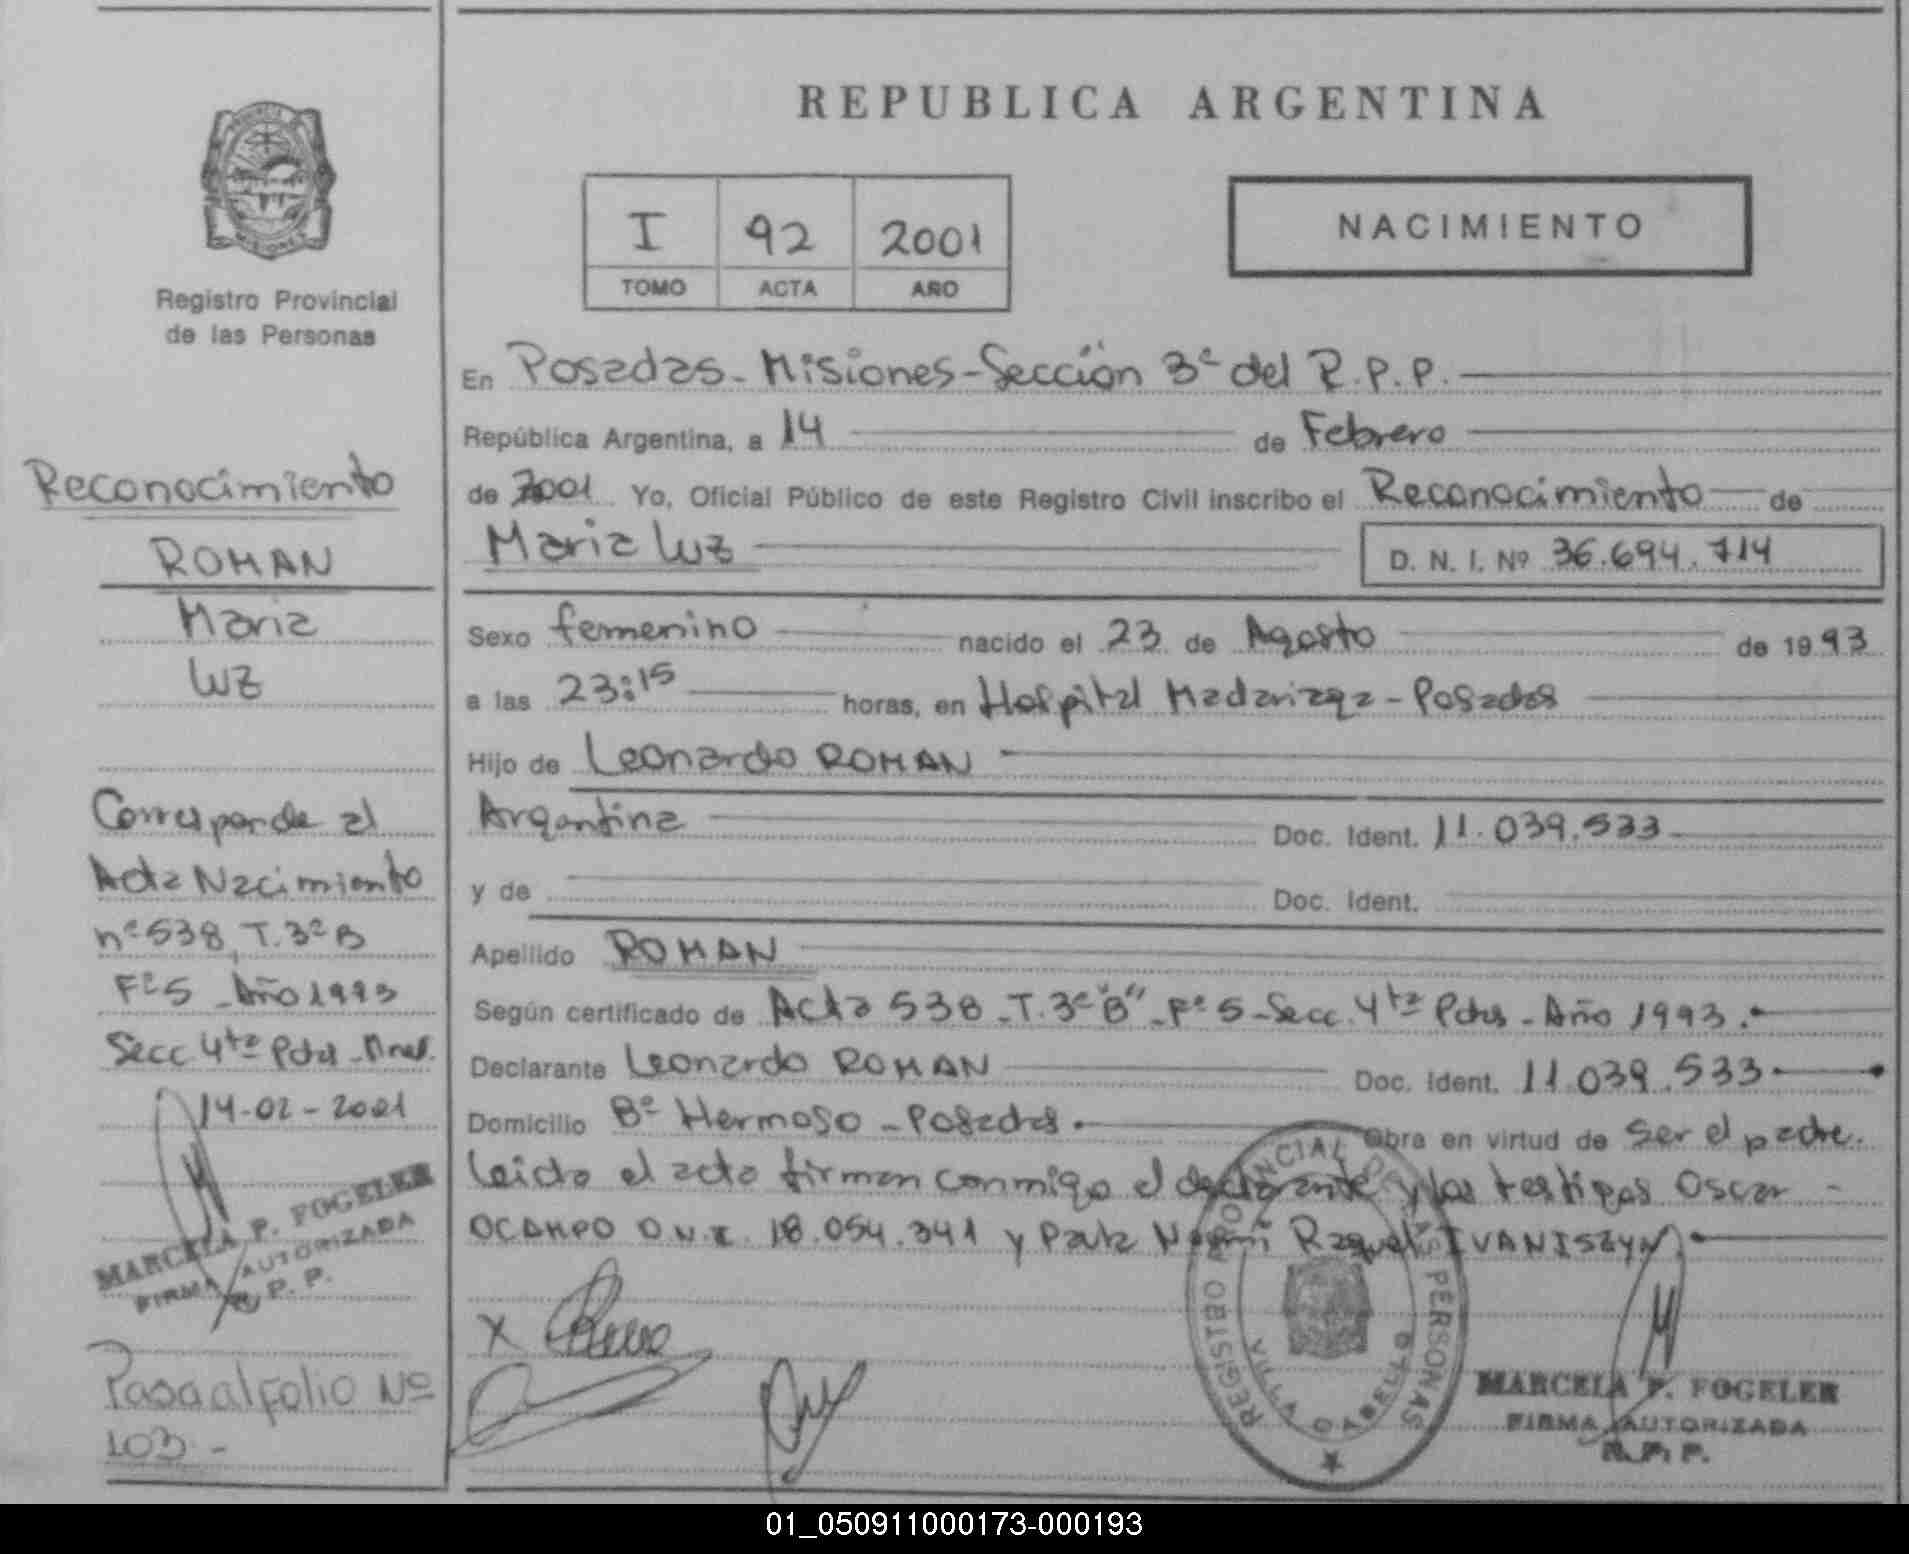 REPUBLICA ARGENTINA
I 92 2001
TOMO ACTA AÑO
NACIMIENTO
MISIONES
Registro Provincial
de las Personas
Reconocimiento
ROMAN
Maria
Luz
Corresponde al
Acta Nacimiento
nº 538, T. 3º B
Fº 5 - Año 1993
Secc. 4ta Pdas - Mnes.
14-02-2001
MARCELA P. FOGELER
FIRMA AUTORIZADA
R. P. P.
Pasa al folio Nº
103 -
En Posadas - Misiones - Sección 3ª del R.P.P.
República Argentina, a 14 de Febrero
de 2001 Yo, Oficial Público de este Registro Civil inscribo el Reconocimiento de
Maria Luz D. N. I. Nº 36.694.714
Sexo femenino nacido el 23 de Agosto de 1993
a las 23:15 horas, en Hospital Madariaga - Posadas
Hijo de Leonardo ROMAN
Argentina Doc. Ident. 11.039.533
y de Doc. Ident.
Apellido ROMAN
Según certificado de Acta 538 - T. 3º "B" - Fº 5 - Secc. 4ta Pdas - Año 1993.
Declarante Leonardo ROMAN Doc. Ident. 11.039.533
Domicilio Bº Hermoso - Posadas. Obra en virtud de ser el padre.
Leida el acta firman conmigo el declarante y los testigos Oscar -
OCAMPO D.N.I. 18.054.341 y Raquel IVANISZYN.
X
REGISTRO PROVINCIAL DE LAS PERSONAS
VILLA CABELLO
MARCELA P. FOGELER
FIRMA AUTORIZADA
R. P. P.
01_050911000173-000193